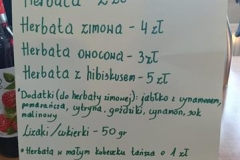 Herbata 2 zł
Herbata zimowa - 4 zł
Herbata owocowa - 3zł
Herbata z hibiskusem - 5 zł
*Dodatki (do herbaty zimowej): jabłko z cynamonem,
pomarańcza, cytryna, goździki, cynamon, sok
malinowy
Lizaki/cukierki - 50 gr
*Herbata w małym kubeczku tańsza o 1 zł